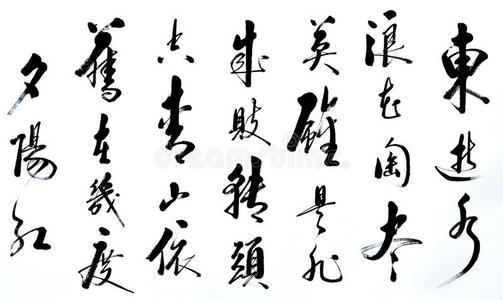 東逝水
浪花淘尽
英雄是非
成敗轉頭
空青山依
舊在幾度
夕陽紅